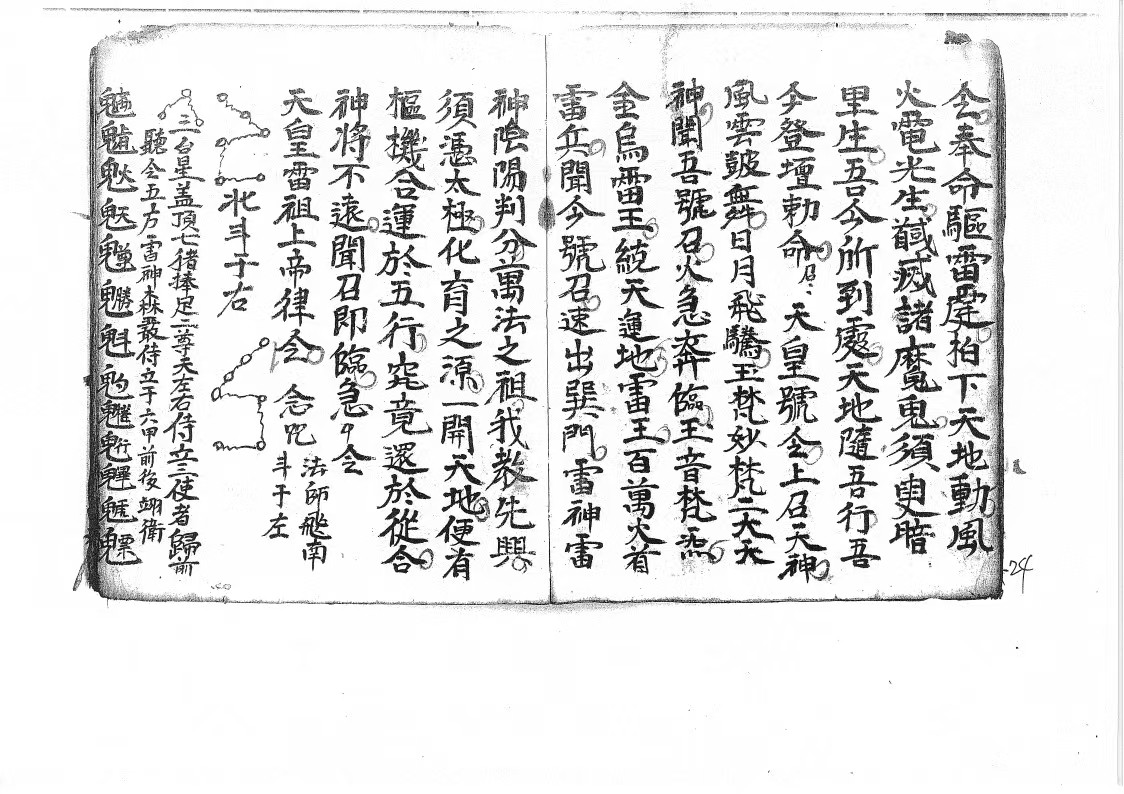 令奉命驅雷霆拍下天地動風
火電光生馘滅諸魔鬼須臾暗
里生吾今所到處天地隨吾行吾
今登壇勅命召:天皇號令上召天神
風雲皷舞日月飛騰玉梵妙梵二大天
神聞吾號召火急奔臨玉音梵炁
金烏雷王統天運地雷王百萬火首
雷兵聞今號召速出巽門雷神雷
神陰陽判分萬法之祖我教先興
須憑太極化育之源一開天地便有
樞機合運於五行究竟還於從合
神將不遠聞召即臨急々令
天皇雷祖上帝律令 念咒
法師飛南
斗于左
北斗于右
三台星盖頂七猪捧足二尊天左右侍立三使者歸前
聽令五方雷神森嚴侍立于六甲前後翊衛